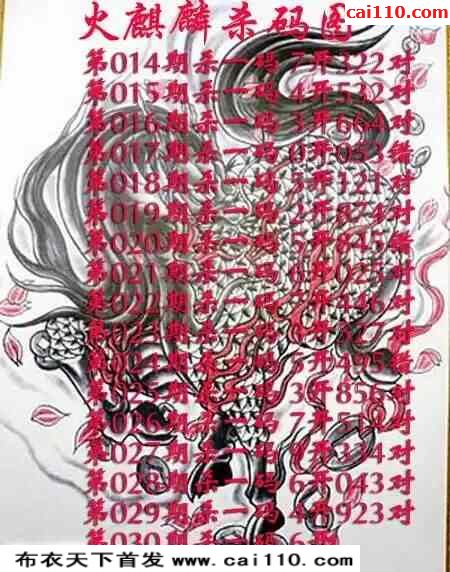 cai110.com
火麒麟杀码图
第014期杀一码 7开322对
第015期杀一码 4开532对
第016期杀一码 3开664对
第017期杀一码 0开053错
第018期杀一码 5开121对
第019期杀一码 2开874对
第020期杀一码 5开845错
第021期杀一码 6开025对
第022期杀一码 开446对
第023期杀一码 开527
第024期杀一码 5开495错
第025期杀一码 3开856对
第026期杀一码 7开 对
第027期杀一码 开334对
第028期杀一码 6开043对
第029期杀一码 4开923对
第030期杀一码 6开
布衣天下首发 www.cai110.com